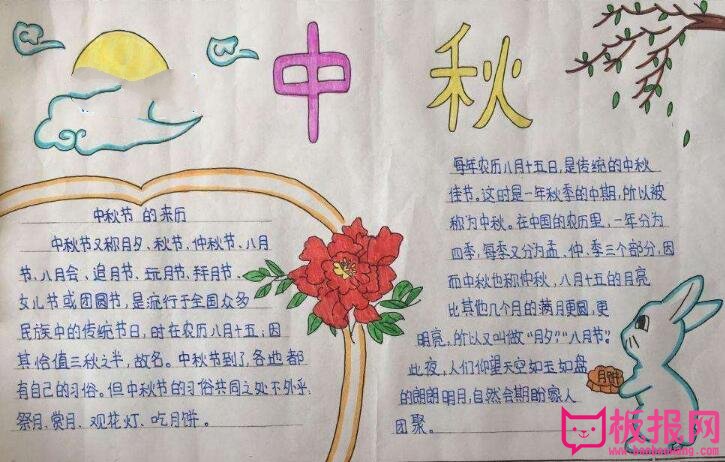 中秋
中秋节 的来历
中秋节又称月夕、秋节、仲秋节、八月
节、八月会、追月节、玩月节、拜月节、
女儿节或团圆节，是流行于全国众多
民族中的传统节日，时在农历八月十五；因
其恰值三秋之半，故名。中秋节到了，各地都
有自己的习俗。但中秋节的习俗共同之处不外乎：
祭月、赏月、观花灯、吃月饼。
每年农历八月十五日，是传统的中秋
佳节。这时是一年秋季的中期，所以被
称为中秋。在中国的农历里，一年分为
四季，每季又分为孟、仲、季三个部分，因
而中秋也称仲秋，八月十五的月亮
比其他几个月的满月更圆，更
明亮，所以又叫做"月夕""八月节"。
此夜，人们仰望天空如玉如盘
的朗朗明月，自然会期盼家人
团聚。
月饼
板报网
www.banbaowang.com